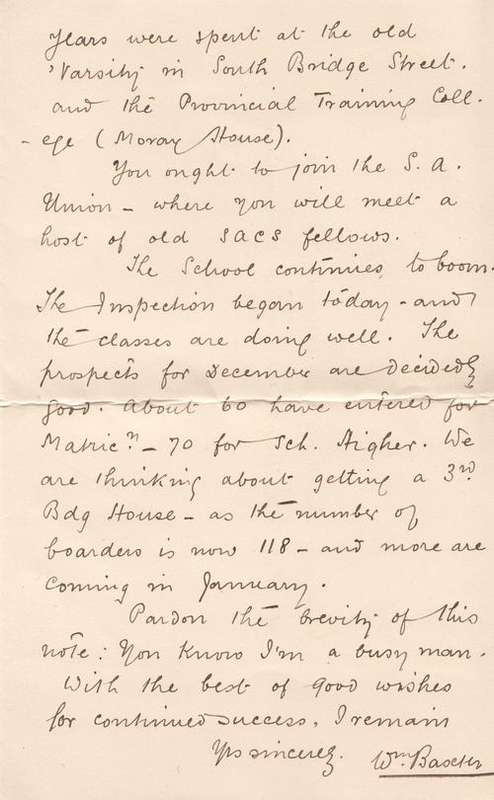 years were spent at the old
'Varsity in South Bridge Street.
and the Provincial Training Coll-
-ege (Moray House).
You ought to join the S. A.
Union - where you will meet a
host of old SACS fellows.
The School continues to boom.
The Inspection began today - and
the classes are doing well. The
prospects for December are decidedly
good. About 60 have entered for
Matricn - 70 for Sch. Higher. We
are thinking about getting a 3rd
Bdg House - as the number of
boarders is now 118 - and more are
coming in January.
Pardon the brevity of this
note: You know I'm a busy man.
With the best of good wishes
for continued success, I remain
Yrs sincerely.
Wm Baxter